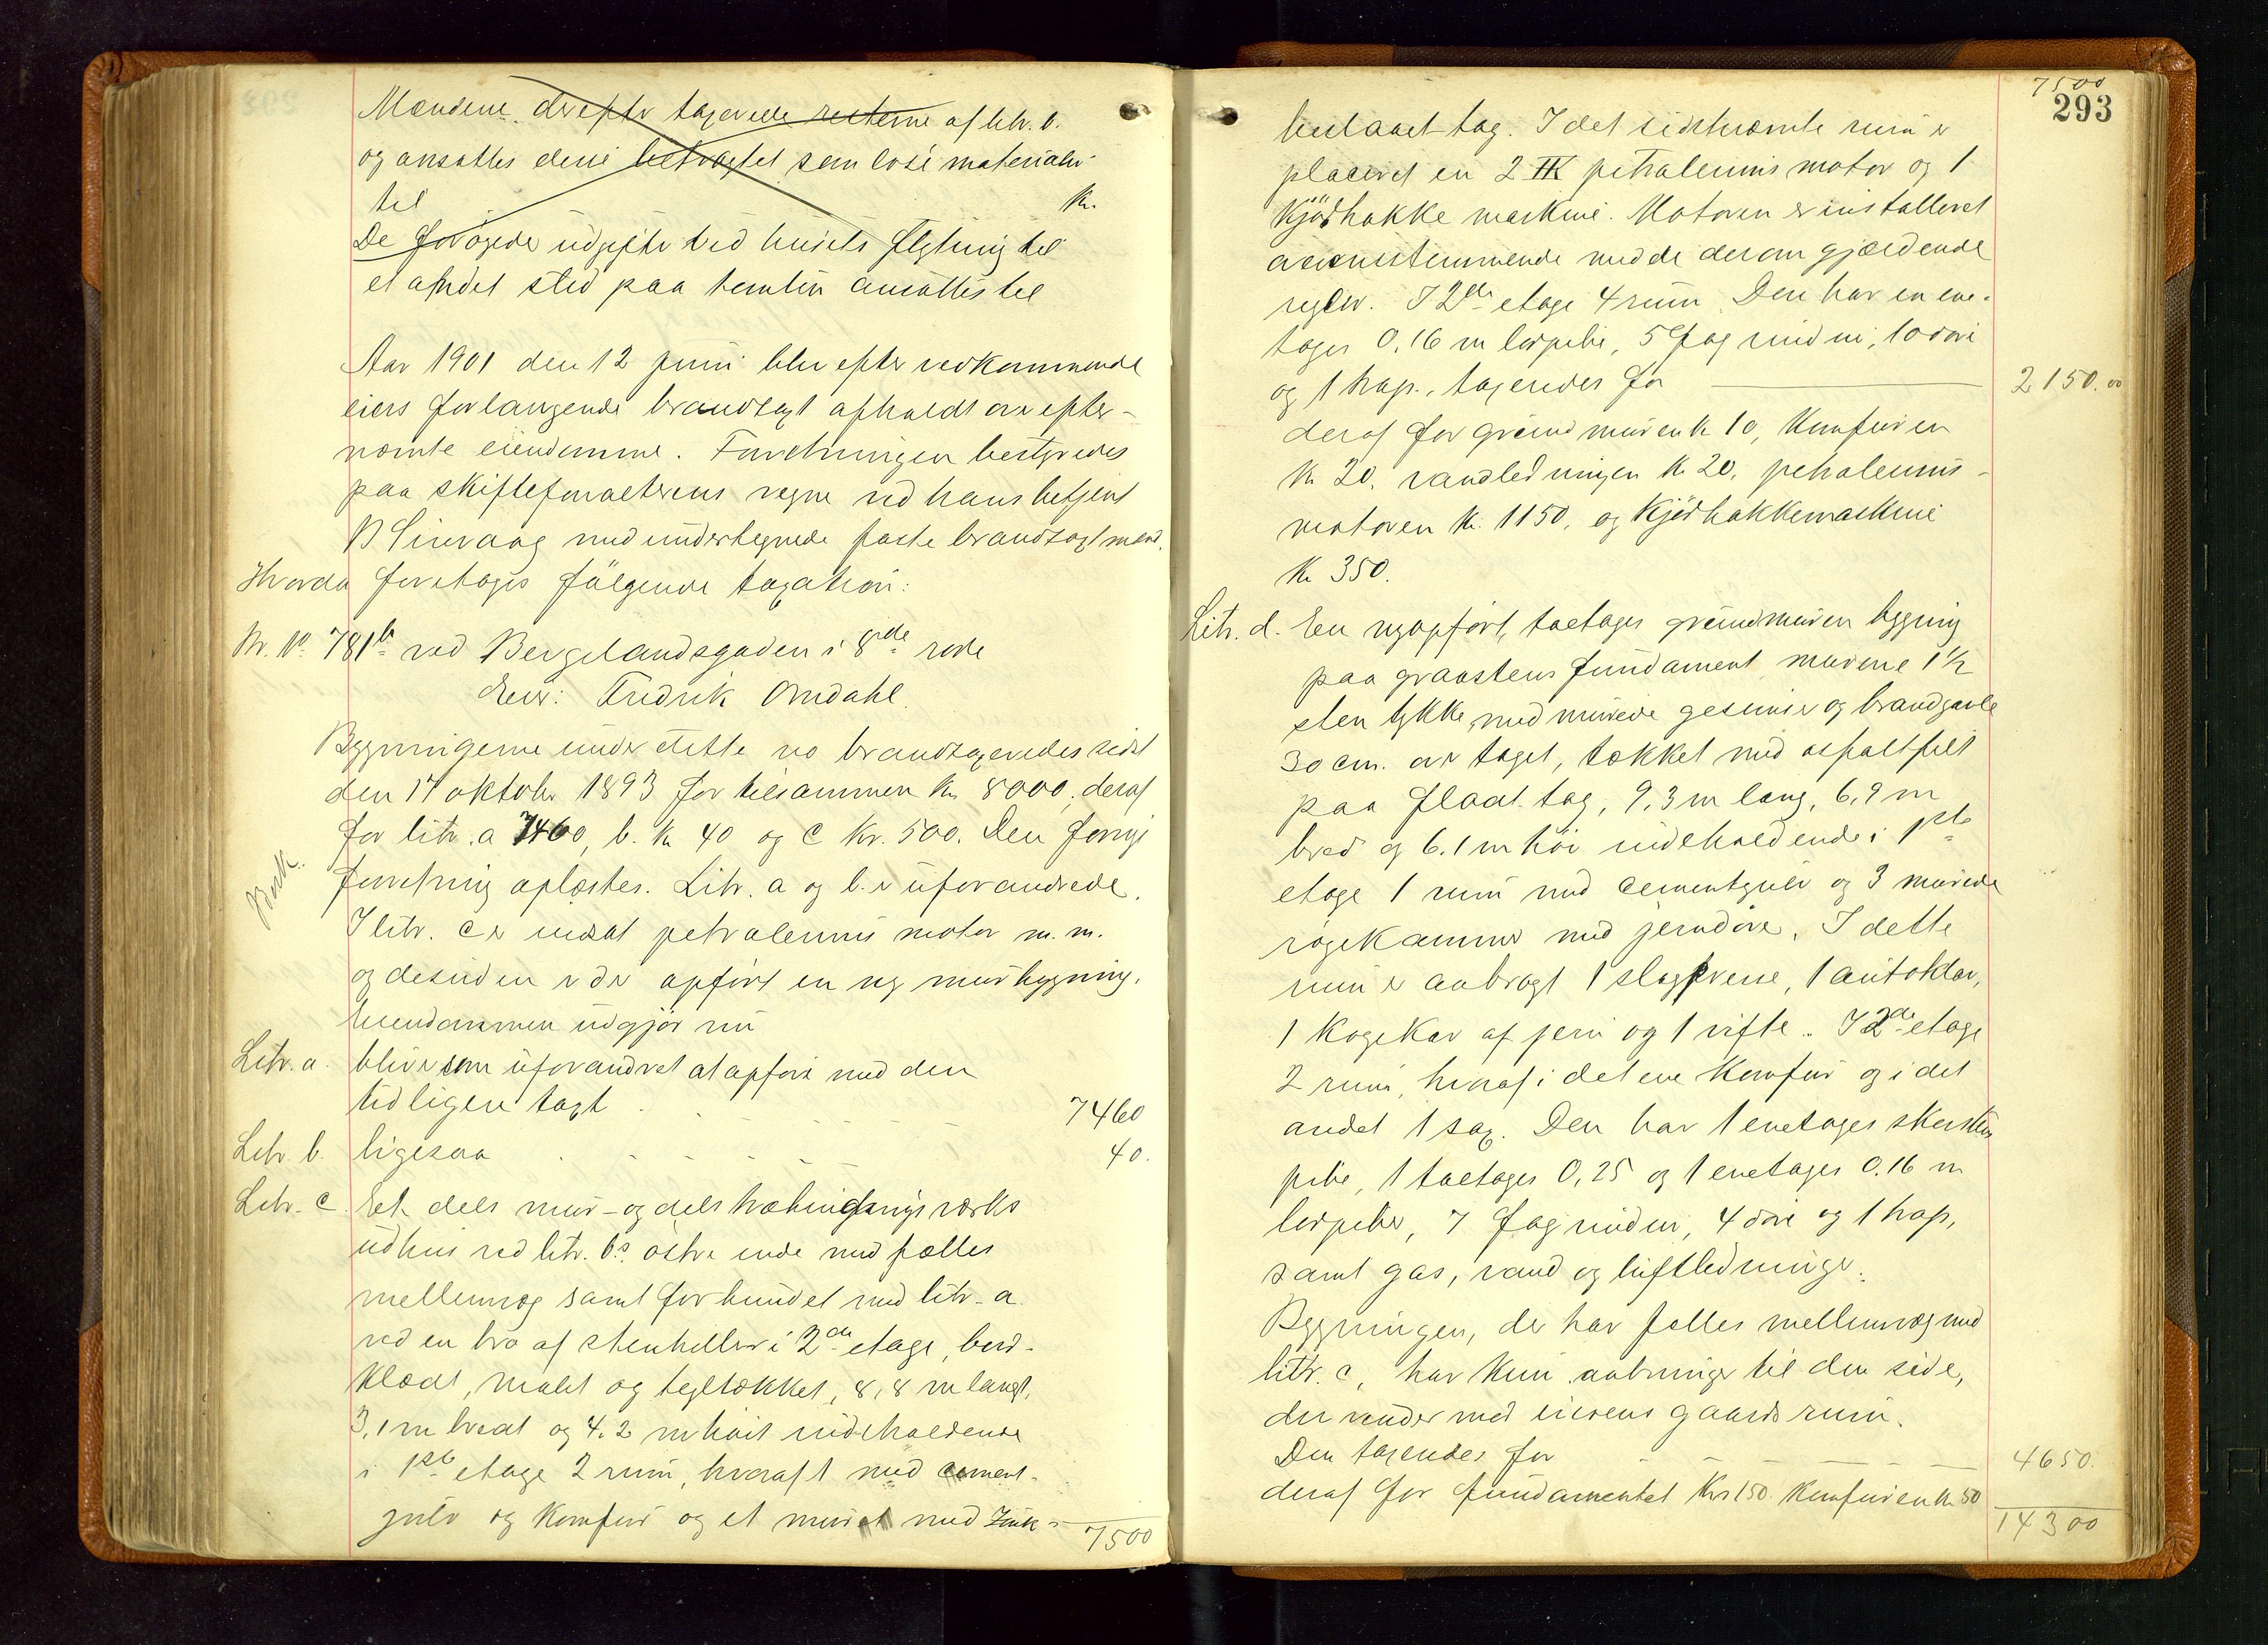 Mændene derefter taxerede resterne af litr. b.
og ansattes denne betragtet som løse materialer
til Kr.
De forøgede udgifte ved husets flytning til
et andet sted paa tomten ansattes til
Aar 1901 den 12 juni blev efter vedkommende
eiers forlangende brandtaxt afholdt over efter-
nævnte eiendomme. Forretningen bestyredes
paa skifteforvalterens vegne ved hans betjent
B Sirevaag med undertegnede faste brandtaxtmænd.
Hvorda foretoges følgende taxation:
Br. No 781b ved Bergelandsgaden i 8de rode
Eier: Fredrik Omdahl.
Bygningerne under dette no brandtaxeredes sidst
den 17 oktober 1893 for tilsammen kr. 8000, deraf
for litr. a 7460, b. kr 40 og c kr. 500. Den forrige
Besk.
forretning oplæstes. Litr. a og b. er uforandrede.
I litr. c er indsat petroleums motor m. m.
og desuden er der opført en ny mur bygning.
Eiendommen udgjør nu
Litr. a. bliver som uforandret at opføre med den
tidligere taxt 7460
Litr. b. ligesaa 40.
Litr. c. Et dels mur- og dels træbindingsværks
udhus ved litr. b's østre ende med fælles
mellemvæg samt forbundet med litr. a
ved en bro af stenheller i 2den etage, bord-
klædt, malet og tegltækket, 8,8 m langt,
3,1 m bredt og 4,2 m høit indeholdende
i 1ste etage 2 rum, hvoraf 1 med cement-
gulv og komfur og et muret med Zink-
7500
7500
293
beslaaet tag. I det sidstnævnte rum er
placeret en 2 HK petroleums motor og 1
Kjødhakke maskine. Motoren er installeret
overensstemmende med de derom gjældende
regler. I 2den etage 4 rum. Den har en ene-
tages 0,16 m lerpibe, 5 fag vinduer, 10 døre
og 1 trap., taxeredes for 2150.00
deraf for grundmuren kr 10, Komfuren
Kr 20, vandledningen Kr 20, petroleums-
motoren Kr. 1150, og Kjødhakkemaskine
Kr 350.
Litr. d. En nyopført, toetages grundmuren bygning
paa graastens fundament, murene 1½
sten tykke, med murede gesimser og brandgavle
30 cm. over taget, tækket med asfaltfilt
paa fladt tag, 9,3 m lang, 6,9 m
bred og 6.1 m høi indeholdende i 1ste
etage 1 rum med cementgulv og 3 murede
røgekammer med jerndøre. I dette
rum er anbragt 1 slagpresse, 1 autoklav,
1 Kogekar af jern og 1 vifte. I 2den etage
2 rum, hvoraf i det ene Komfur og i det
andet 1 sag. Den har 1 enetages skorsten
pibe, 1 toetages 0,25 og 1 enetages 0.16 m
lerpiber, 7 fag vinduer, 4 døre og 1 trap,
samt gas, vand og luftledninger.
Bygningen, der har fælles mellemvæg med
litr. c, har kun aabninger til den side,
der vender mod eierens gaardsrum.
Den taxeredes for 4650.
deraf for fundamentet Kr 150. Komfuren Kr. 50
14300